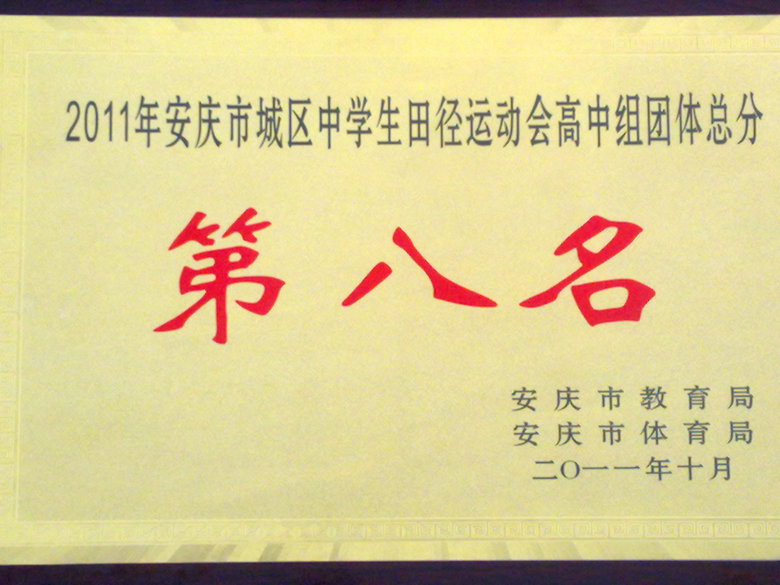 2011年安庆市城区中学生田径运动会高中组团体总分
第八名
安庆市教育局
安庆市体育局
二〇一一年十月